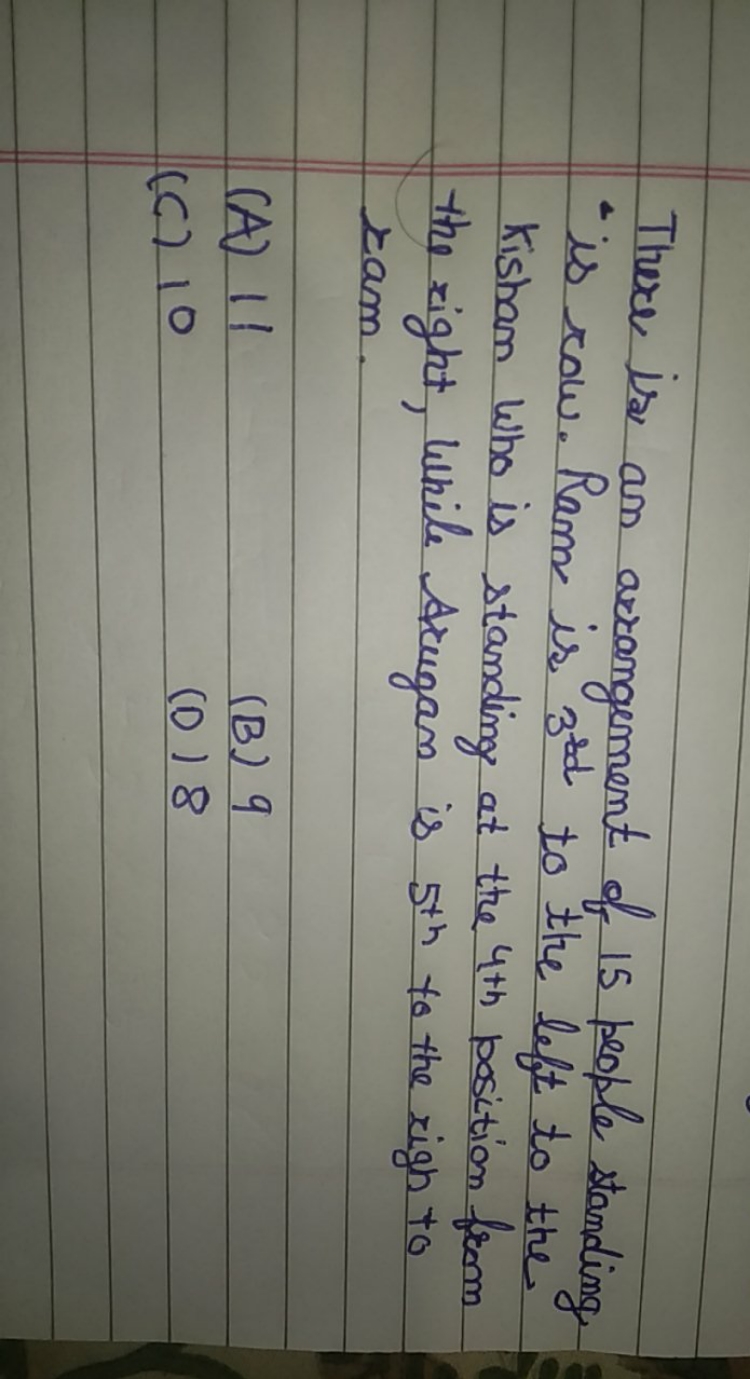 There is an arrangement of 15 people standing
is row. Ram is 3rd to the left to the
Kisham who is standing at the 4th position from
the right, while Arugan is 5th to the righ to
ram.
(A) 11 (B) 9
(C) 10 (D) 8